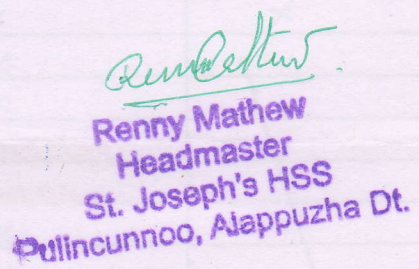 Renny Mathew
Headmaster
St. Joseph's HSS
Pulincunnoo, Alappuzha Dt.